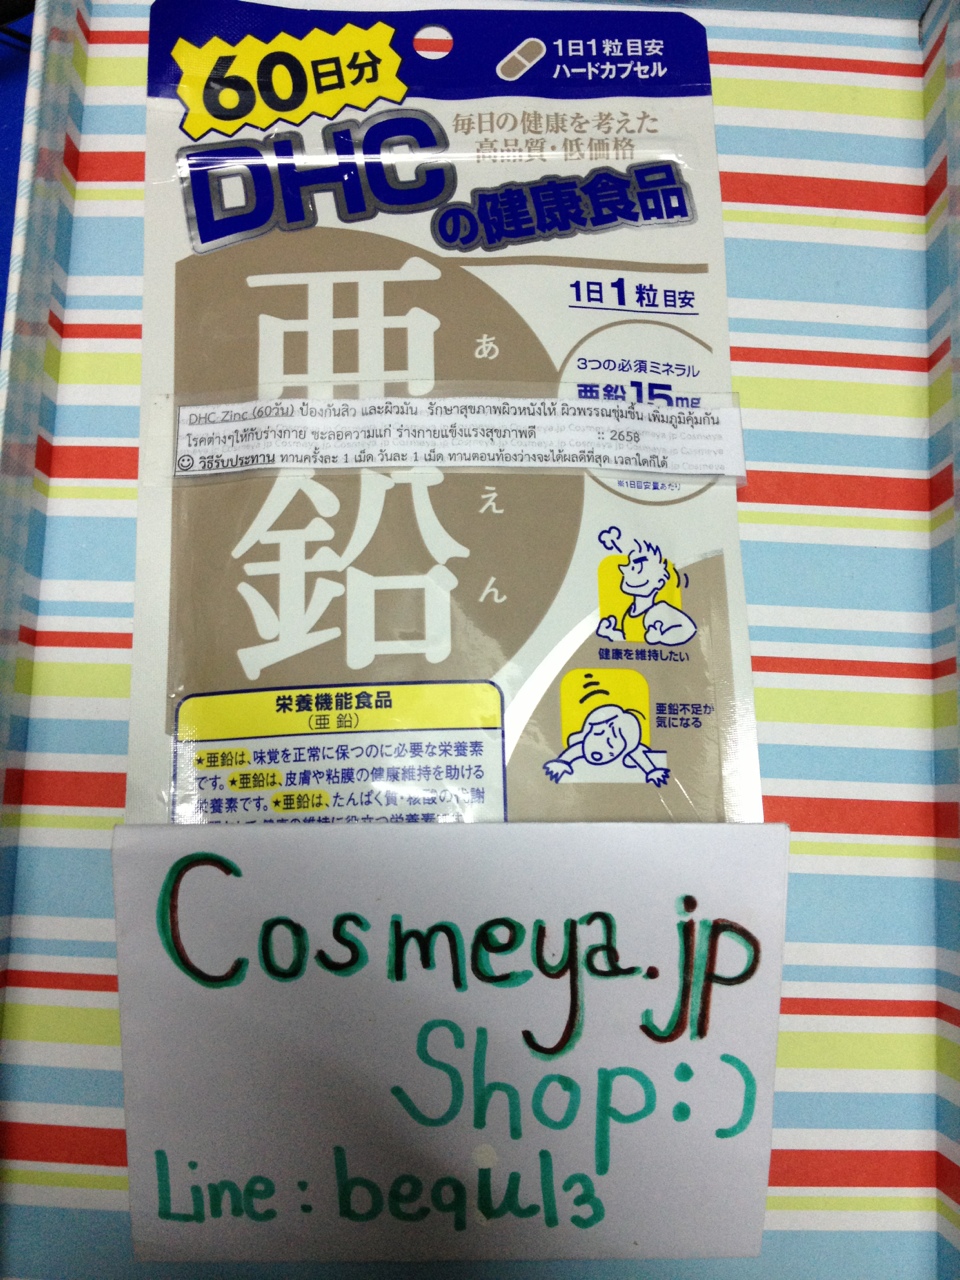 60日分
1日1粒目安
ハードカプセル
毎日の健康を考えた
高品質・低価格
DHC
の健康食品
1日1粒目安
亜鉛
あえん
3つの必須ミネラル
亜鉛15mg
DHC Zinc (60วัน) ป้องกันสิว และผิวมัน รักษาสุขภาพผิวหนังให้ ผิวพรรณชุ่มชื้น เพิ่มภูมิคุ้มกัน
โรคต่างๆให้กับร่างกาย ชะลอความแก่ ร่างกายแข็งแรงสุขภาพดี :: 2658
วิธีรับประทาน ทานครั้งละ 1 เม็ด วันละ 1 เม็ด ทานตอนท้องว่างจะได้ผลดีที่สุด เวลาใดก็ได้
※1日目安量あたり
健康を維持したい
亜鉛不足が
気になる
栄養機能食品
(亜鉛)
★亜鉛は、味覚を正常に保つのに必要な栄養素
です。★亜鉛は、皮膚や粘膜の健康維持を助ける
栄養素です。★亜鉛は、たんぱく質・核酸の代謝
Cosmeya.jp
Shop:)